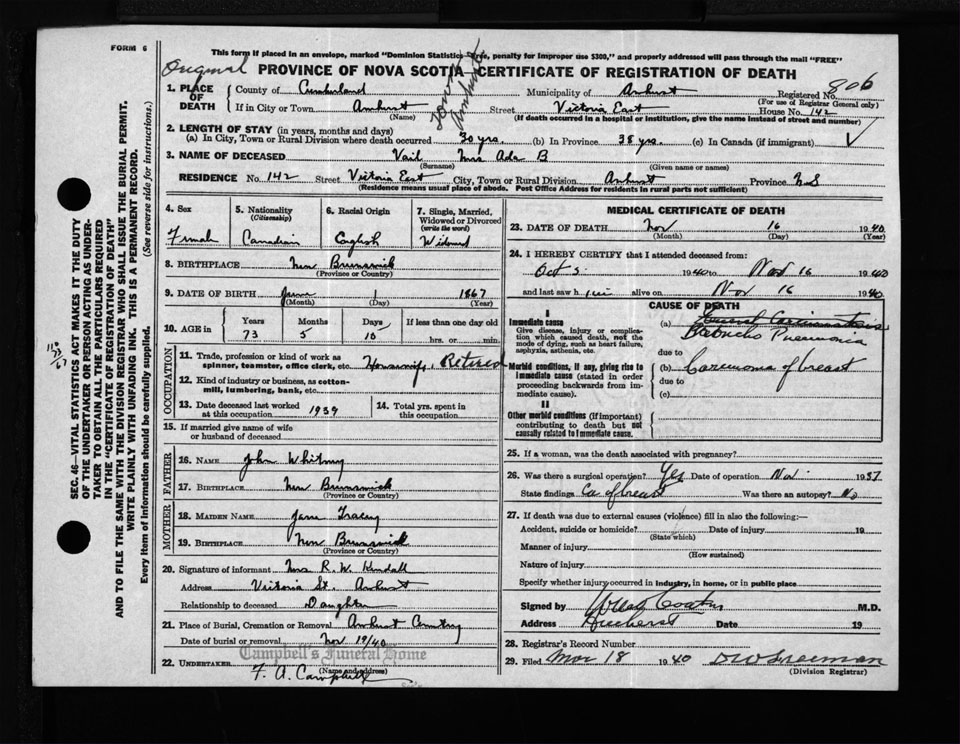 FORM 6
This form if placed in an envelope, marked "Dominion Statistics penalty for improper use $300," and properly addressed will pass through the mail "FREE"
Original PROVINCE OF NOVA SCOTIA CERTIFICATE OF REGISTRATION OF DEATH
Town Amherst
1. PLACE OF DEATH County of Cumberland Municipality of Amherst Registered No. 806
(For use of Registrar General only)
If in City or Town Amherst Street Victoria East House No. 142
(Name) (If death occurred in a hospital or institution, give the name instead of street and number)
2. LENGTH OF STAY (in years, months and days)
(a) In City, Town or Rural Division where death occurred 30 yrs. (b) In Province 38 yrs. (c) In Canada (if immigrant)
3. NAME OF DECEASED Vail Mrs Ada B
(Surname) (Given name or names)
RESIDENCE No. 142 Street Victoria East City, Town or Rural Division Amherst Province N.S
(Residence means usual place of abode. Post Office Address for residents in rural parts not sufficient)
4. Sex 5. Nationality (Citizenship) 6. Racial Origin 7. Single, Married, Widowed or Divorced (write the word)
Female Canadian English Widowed
8. BIRTHPLACE New Brunswick
(Province or Country)
9. DATE OF BIRTH June 1 1867
(Month) (Day) (Year)
10. AGE in Years Months Days If less than one day old
73 5 10 hrs. or min.
OCCUPATION
11. Trade, profession or kind of work as spinner, teamster, office clerk, etc. Housewife. Retired
12. Kind of industry or business, as cotton-mill, lumbering, bank, etc.
13. Date deceased last worked at this occupation 1939 14. Total yrs. spent in this occupation
15. If married give name of wife or husband of deceased
FATHER
16. NAME John Whitney
17. BIRTHPLACE New Brunswick
(Province or Country)
MOTHER
18. MAIDEN NAME Jane Tracey
19. BIRTHPLACE New Brunswick
(Province or Country)
20. Signature of informant Mrs R. W. Kendall
Address Victoria St. Amherst
Relationship to deceased Daughter
21. Place of Burial, Cremation or Removal Amherst Cemetery
Date of burial or removal Nov 19/40
Campbell's Funeral Home
22. UNDERTAKER F. A. Campbell
(Name and address)
MEDICAL CERTIFICATE OF DEATH
23. DATE OF DEATH Nov 16 1940
(Month) (Day) (Year)
24. I HEREBY CERTIFY that I attended deceased from:
Oct 5 1940 to Nov 16 1940
and last saw h alive on Nov 16 1940
CAUSE OF DEATH
I
Immediate cause
Give disease, injury or complication which caused death, not the mode of dying, such as heart failure, asphyxia, asthenia, etc.
(a) General Carcinomatosis
Pneumonia
Morbid conditions, if any, giving rise to immediate cause (stated in order proceeding backwards from immediate cause).
due to
(b) Carcinoma of breast
due to
(c)
II
Other morbid conditions (if important) contributing to death but not causally related to immediate cause.
25. If a woman, was the death associated with pregnancy?
26. Was there a surgical operation? Yes Date of operation Nov 1937
State findings Ca of breast Was there an autopsy? No
27. If death was due to external causes (violence) fill in also the following:—
Accident, suicide or homicide? Date of injury 19
(State which)
Manner of injury
(How sustained)
Nature of injury
Specify whether injury occurred in industry, in home, or in public place
Signed by M.D.
Address Amherst Date 19
28. Registrar's Record Number
29. Filed Nov 18 1940 D W Freeman
(Division Registrar)
SEC. 46—VITAL STATISTICS ACT MAKES IT THE DUTY
OF THE UNDERTAKER OR PERSON ACTING AS UNDER-
TAKER TO OBTAIN ALL THE PARTICULARS REQUIRED
IN THE "CERTIFICATE OF REGISTRATION OF DEATH"
AND TO FILE THE SAME WITH THE DIVISION REGISTRAR WHO SHALL ISSUE THE BURIAL PERMIT.
WRITE PLAINLY WITH UNFADING INK. THIS IS A PERMANENT RECORD.
Every item of information should be carefully supplied. (See reverse side for instructions.)